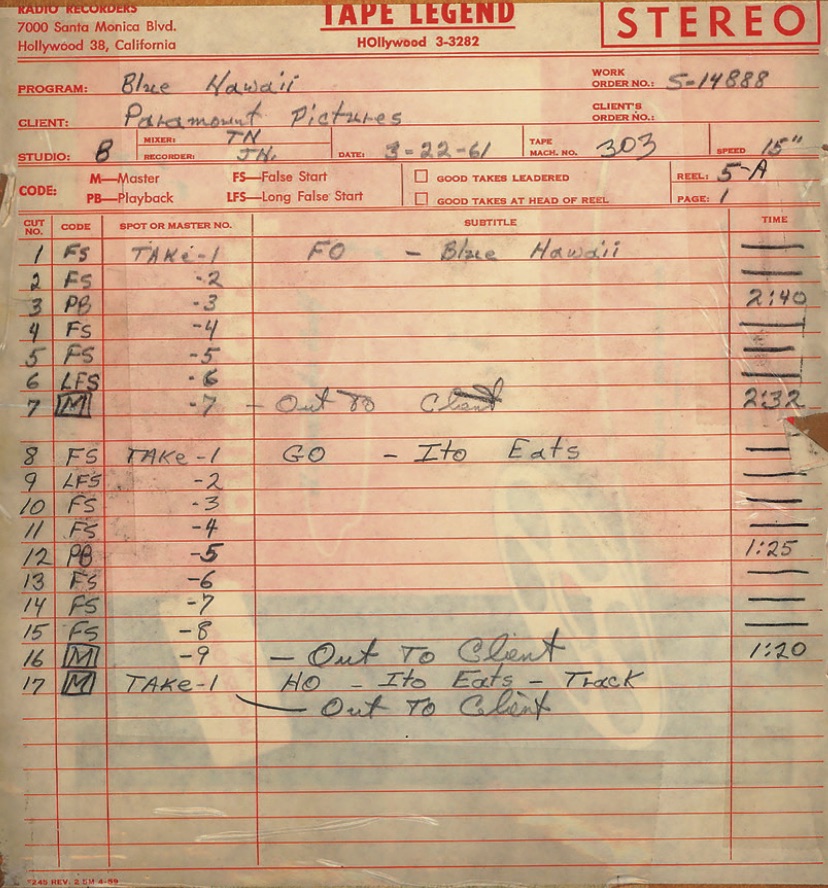 RADIO RECORDERS
7000 Santa Monica Blvd.
Hollywood 38, California
TAPE LEGEND
HOllywood 3-3282
STEREO
PROGRAM: Blue Hawaii
WORK ORDER NO.: S-14888
CLIENT: Paramount Pictures
CLIENT'S ORDER NO.:
STUDIO: B MIXER: TN RECORDER: JH. DATE: 3-22-61 TAPE MACH. NO. 303 SPEED 15"
CODE: M—Master FS—False Start GOOD TAKES LEADERED REEL: 5-A
PB—Playback LFS—Long False Start GOOD TAKES AT HEAD OF REEL PAGE: 1
CUT NO. CODE SPOT OR MASTER NO. SUBTITLE TIME
1 FS TAKE-1 FO - Blue Hawaii —
2 FS -2 —
3 PB -3 2:40
4 FS -4 —
5 FS -5 —
6 LFS -6 —
7 M -7 - Out To Client 2:32
8 FS TAKE-1 GO - Ito Eats —
9 LFS -2 —
10 FS -3 —
11 FS -4 —
12 PB -5 1:25
13 FS -6 —
14 FS -7 —
15 FS -8 —
16 M -9 - Out To Client 1:20
17 M TAKE-1 HO - Ito Eats - Track
Out To Client
F245 REV. 2 5M 4-59